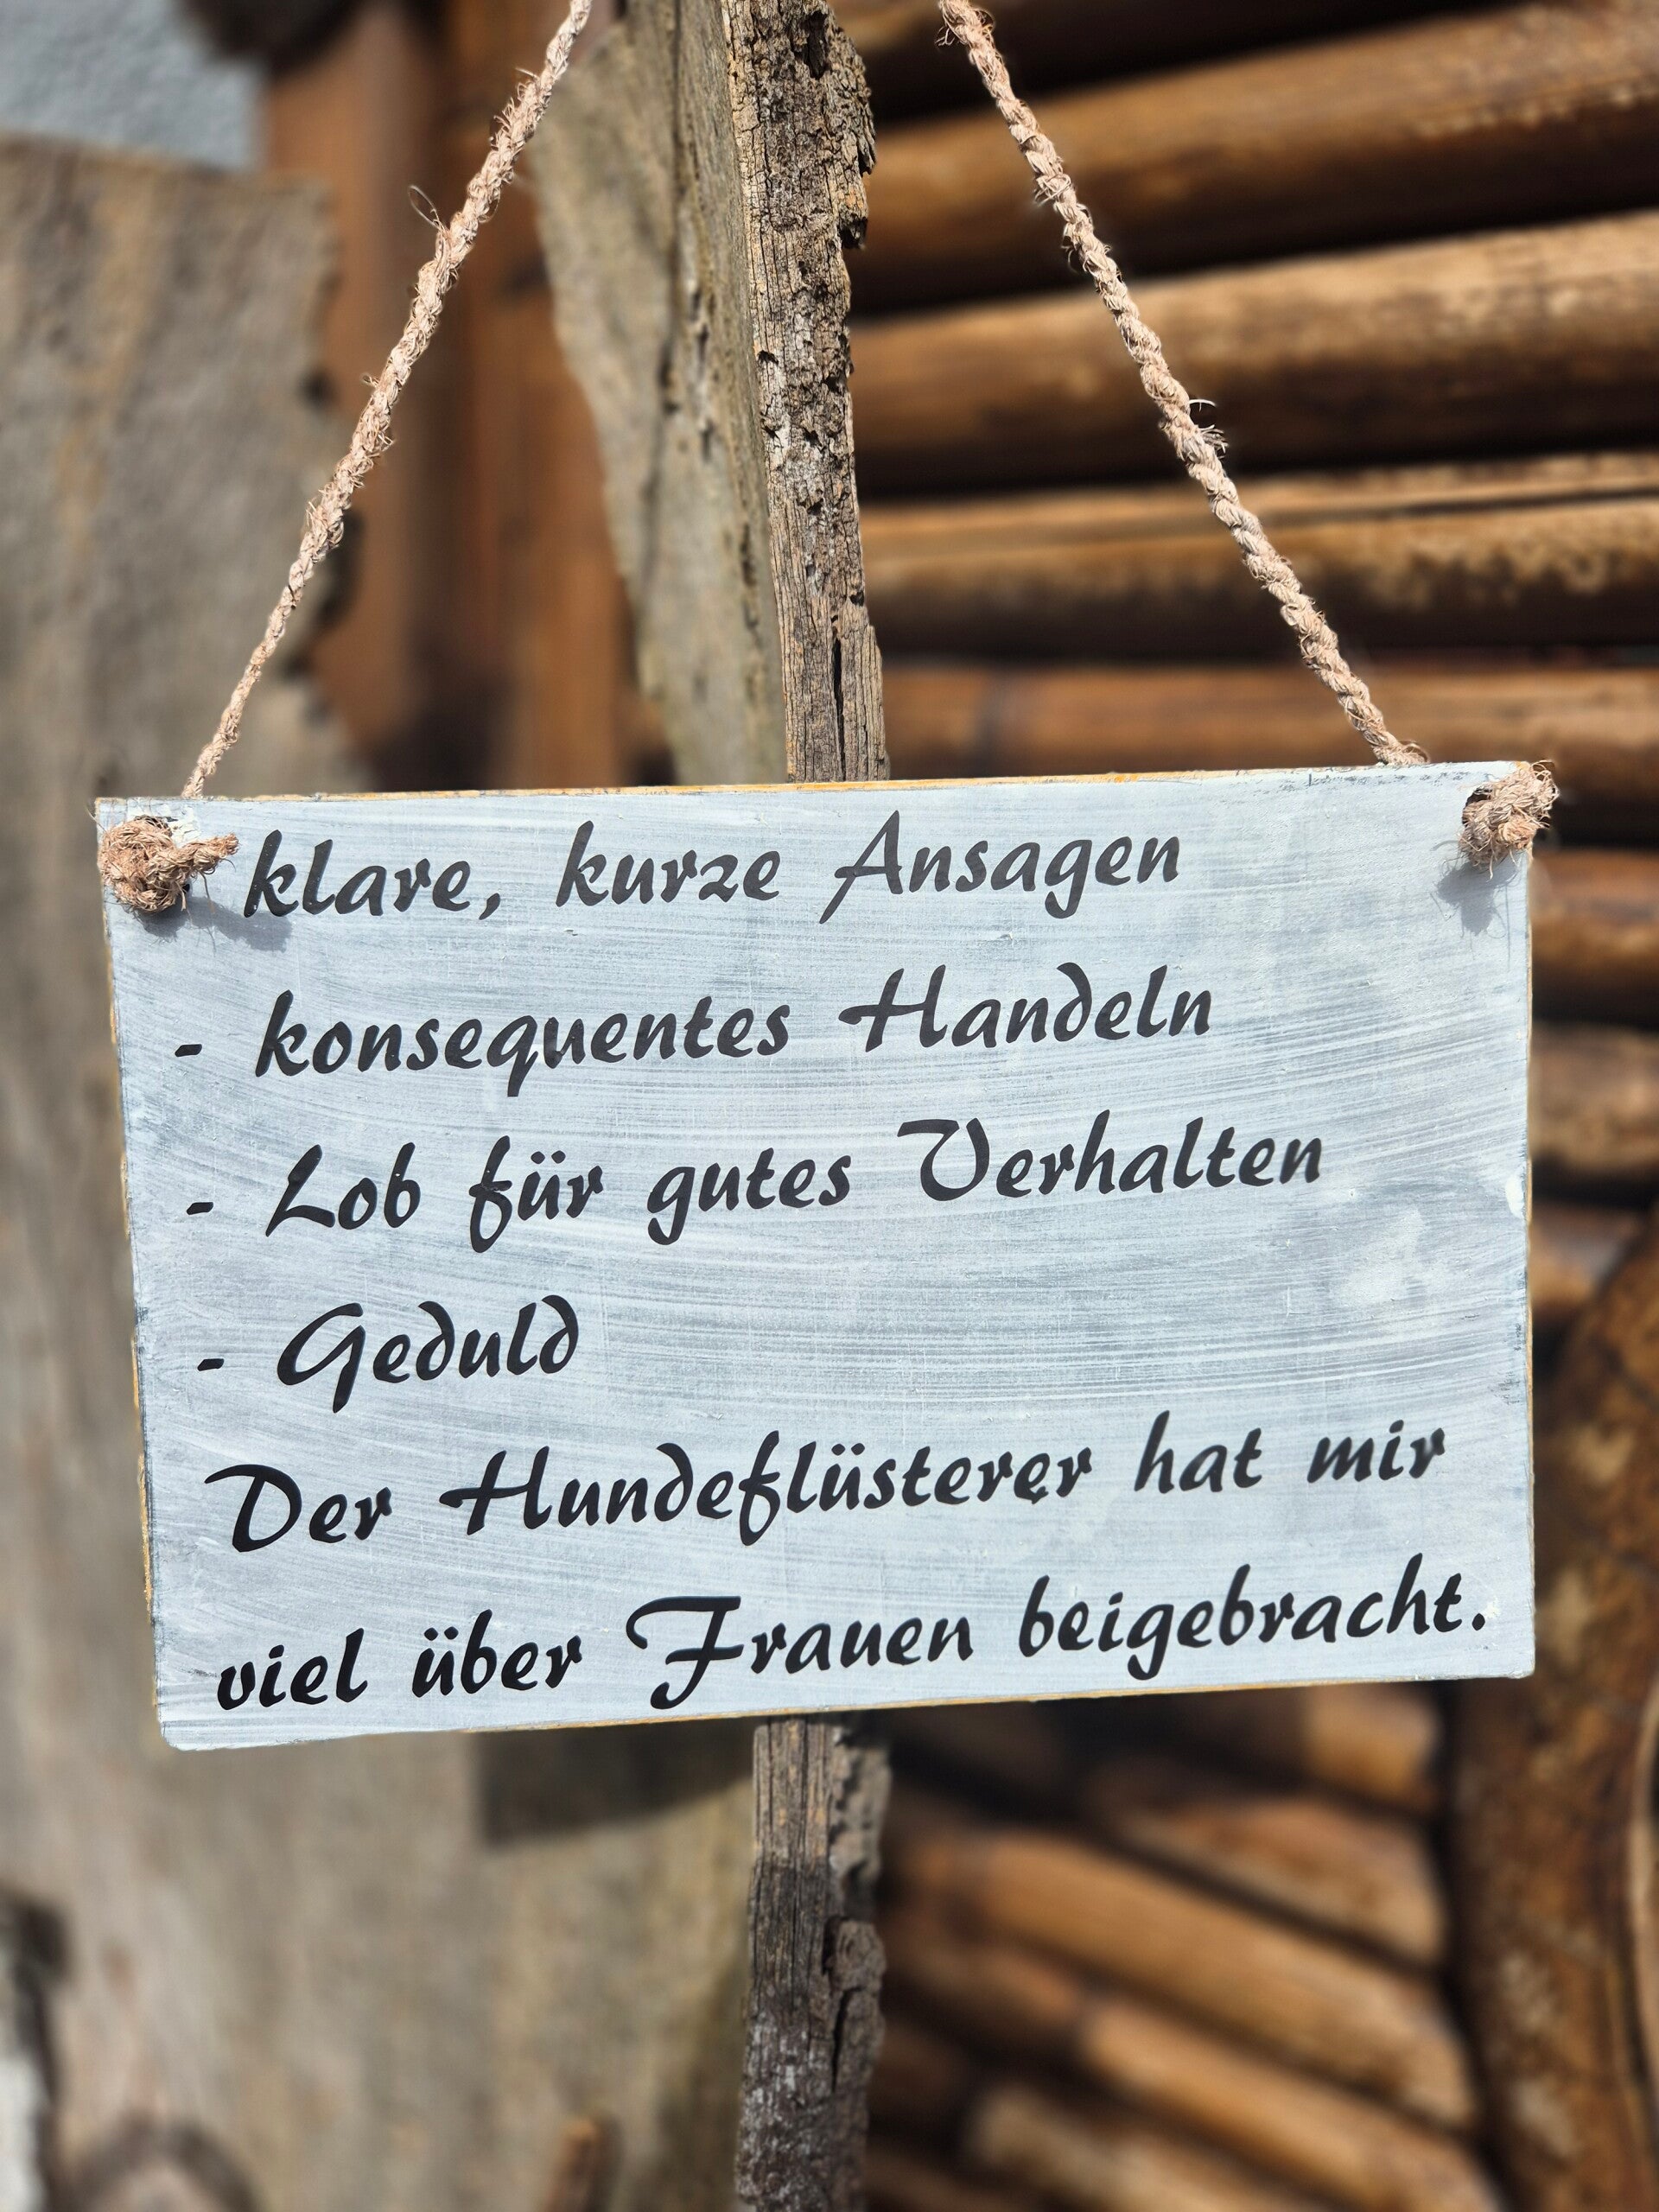 klare, kurze Ansagen
- konsequentes Handeln
- Lob für gutes Verhalten
- Geduld
Der Hundeflüsterer hat mir
viel über Frauen beigebracht.